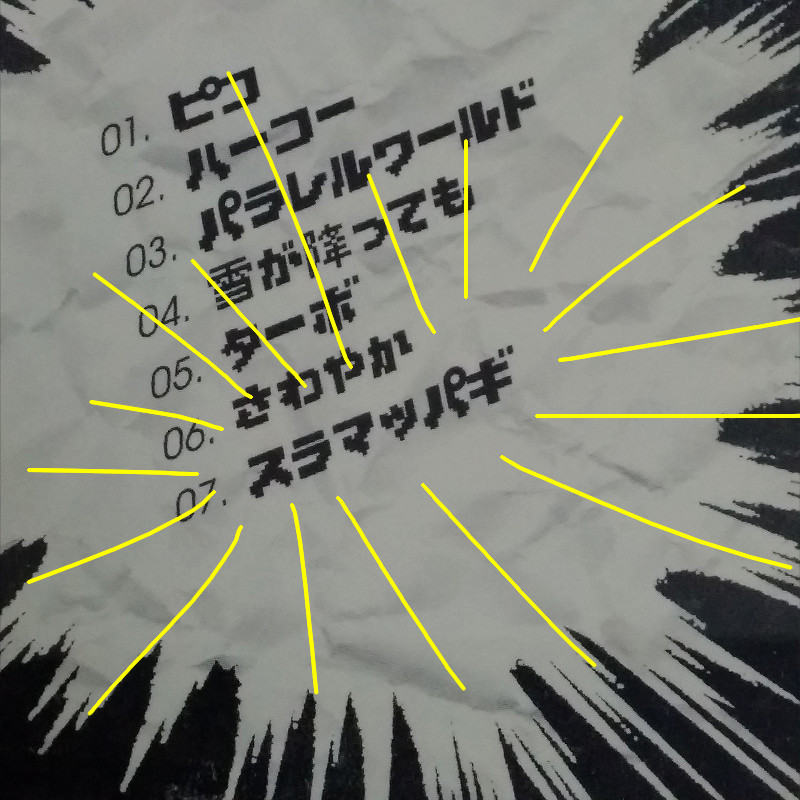 01. ピコ
02. ハーコー
03. パラレルワールド
04. 雪が降っても
05. ターボ
06. さわやか
07. スラマッパギ